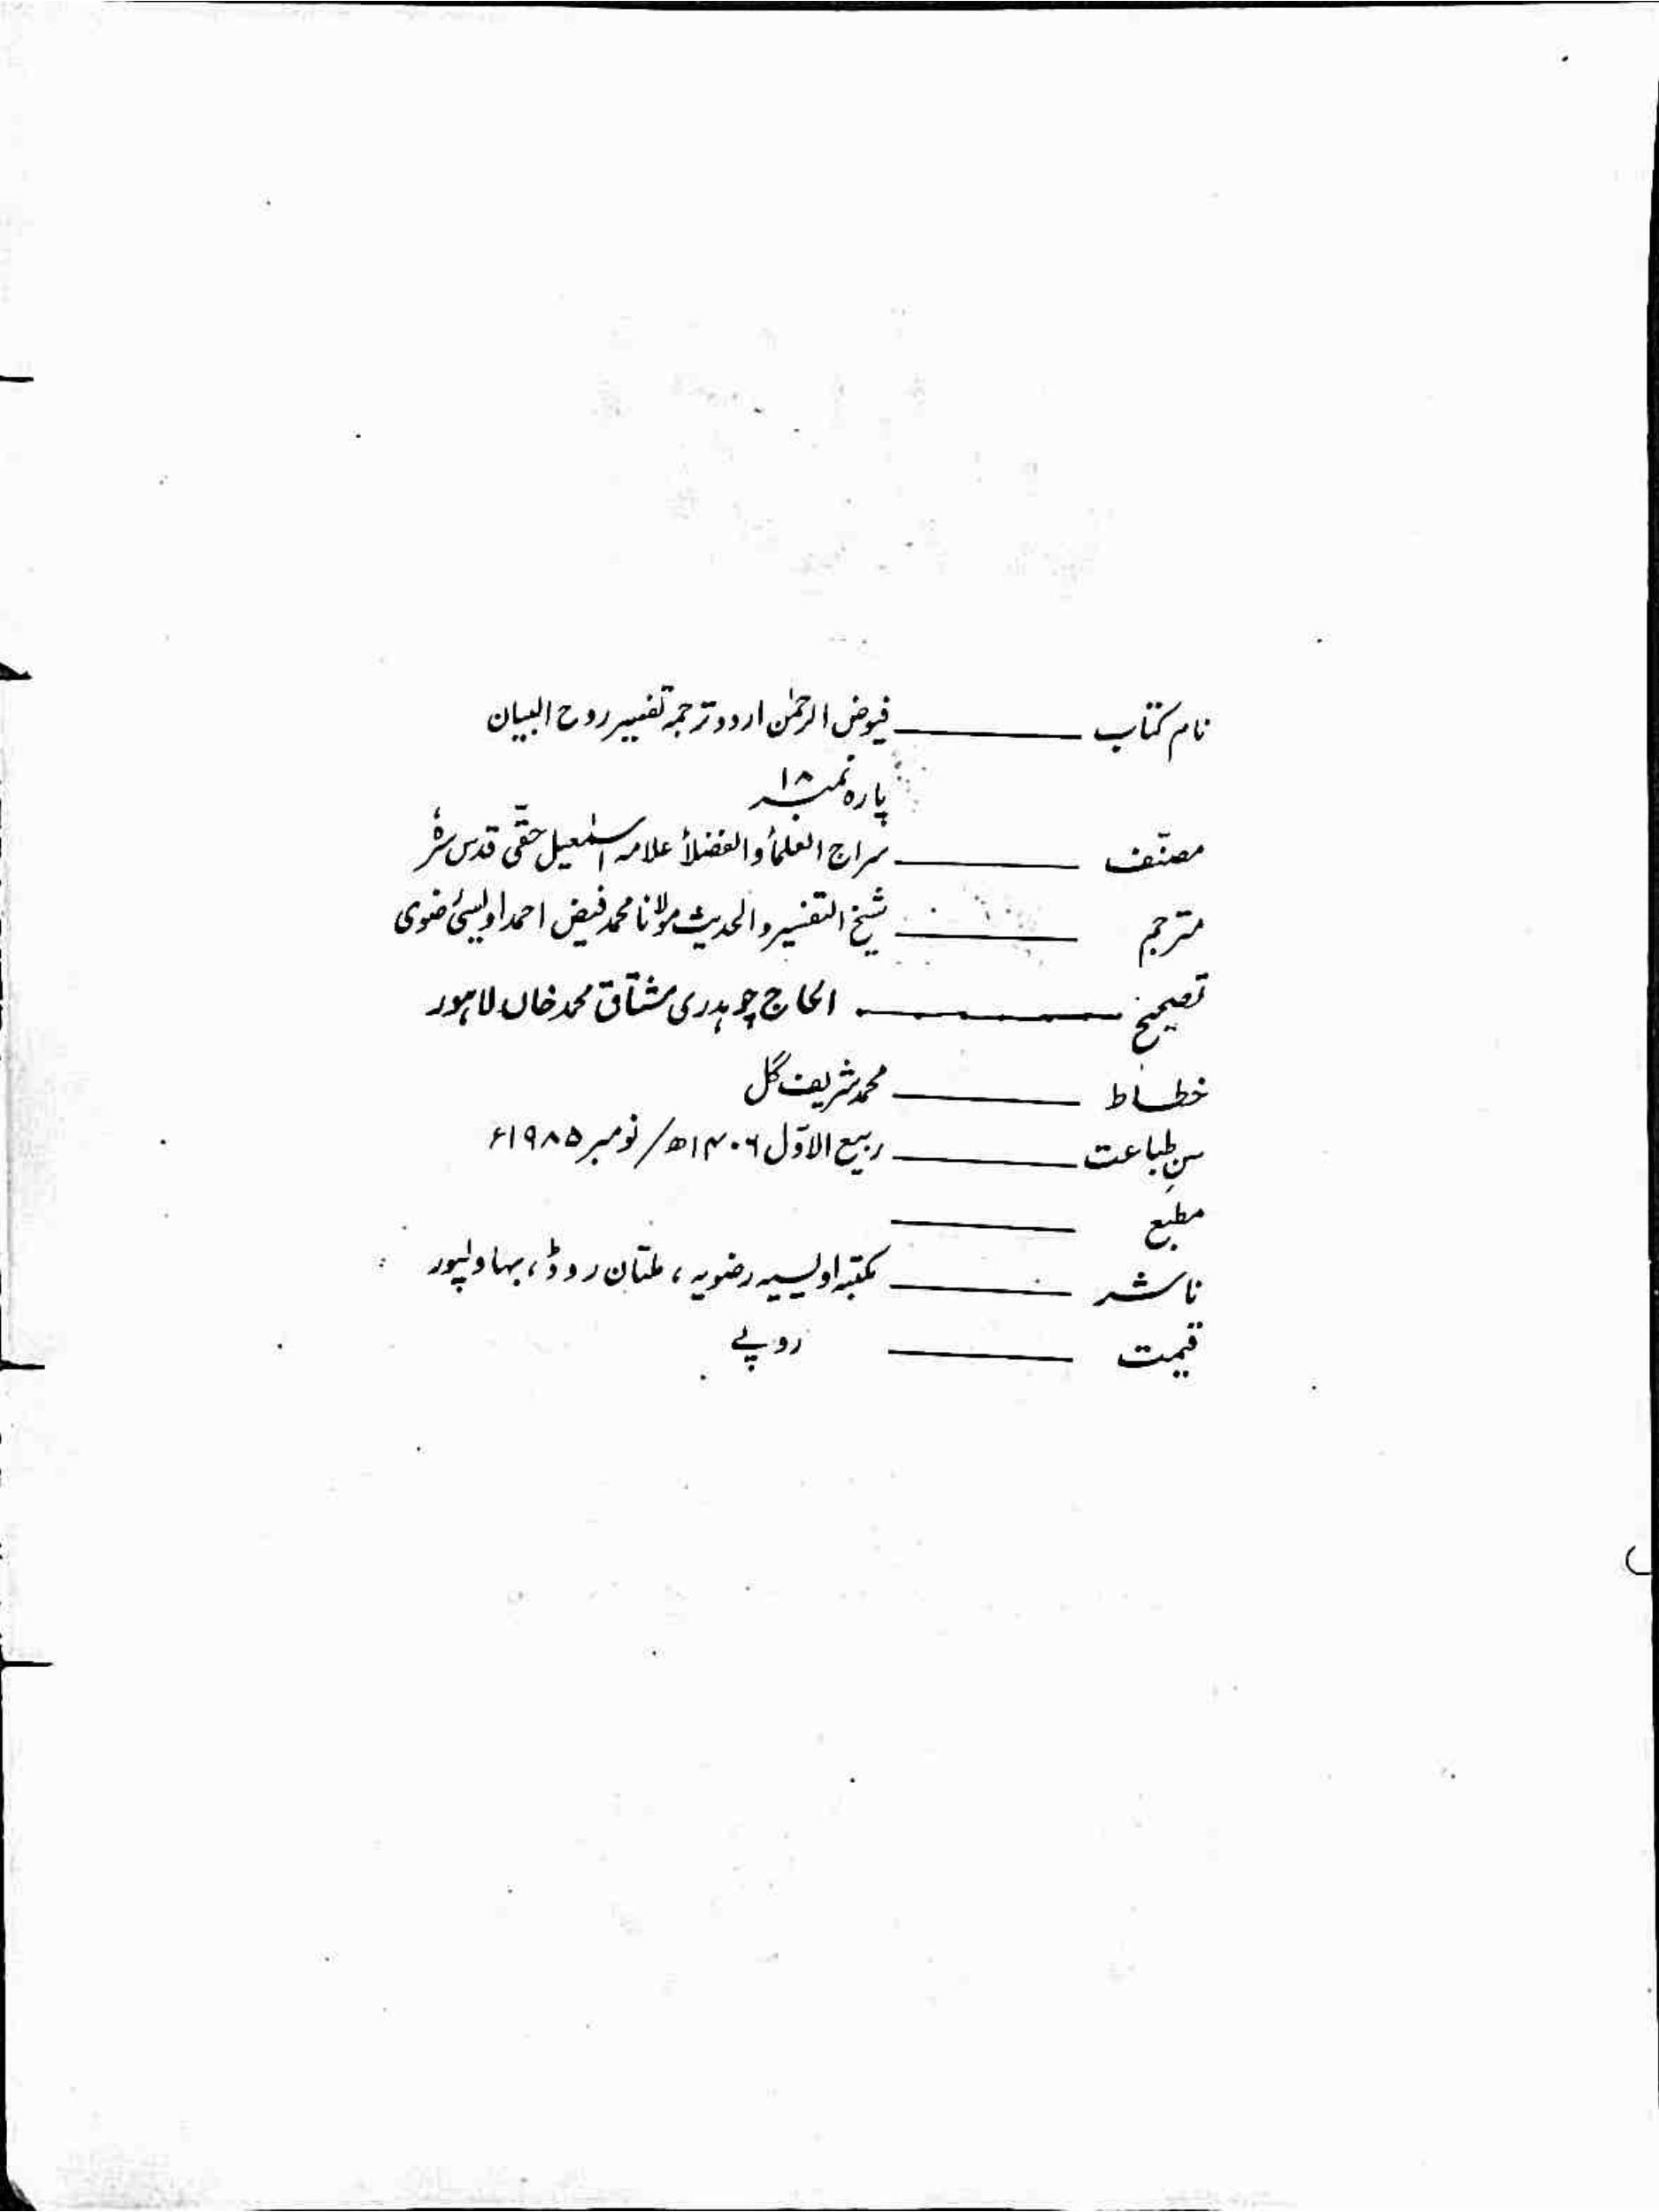 نام کتاب ــــــــ فیوض الرحمٰن اردو ترجمہ تفسیر روح البیان
پارہ نمبر ۱۸
مصنّف ــــــــ سراج العلماُ والفضلاُ علامہ اسمٰعیل حقّی قدس سرہٗ
مترجم ــــــــ شیخ التفسیر والحدیث مولانا محمد فیض احمد اویسی رضوی
تصحیح ــــــــ الحاج چوہدری مشتاق محمد خاں لاہور
خطاط ــــــــ محمد شریف گل
سنِ طباعت ــــــــ ربیع الاوّل ۱۴۰۶ھ / نومبر ۱۹۸۵ء
مطبع ــــــــ
ناشر ــــــــ مکتبہ اویسیہ رضویہ، ملتان روڈ، بہاولپور
قیمت ــــــــ روپے